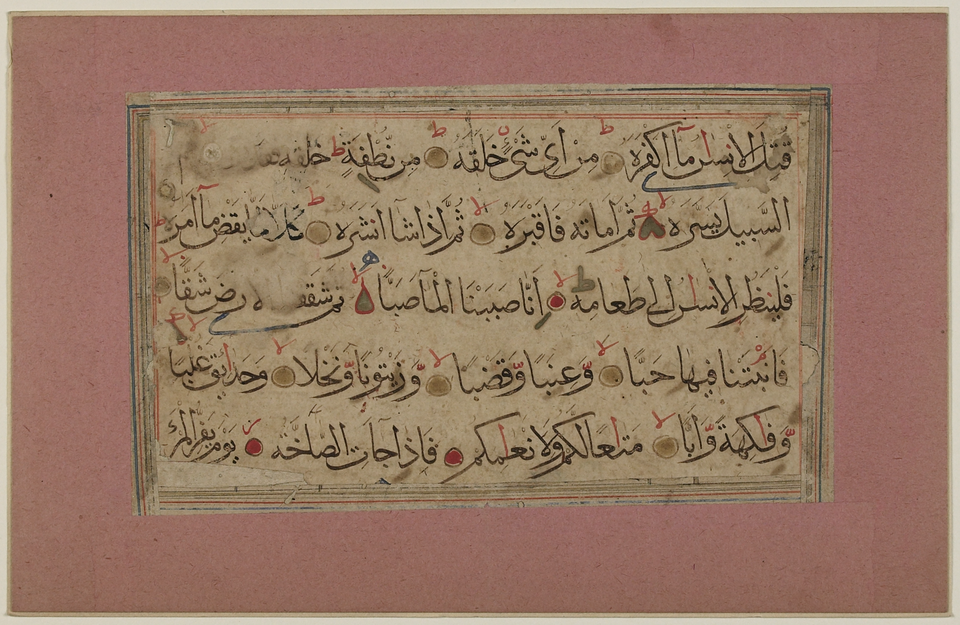 قُتِلَ الانسٰن ما اكفره مِن اىّ شىءٍ خلقه مِن نّطفة خلقه
السّبيل يسّره ثم اماته فاقبره ثمّ اذا شا انشره كلا لمّا يقض ما امره
فلينظر الانسٰن الى طعامه انّا صببنا المآ صبّا ثم شققنا رض شقّا
فانبتنا فيها حبّا وّعنبا وّقضبا وّزيتونا وّنخلا وحدآئق غلبا
وّفٰكهة وّابّا متٰعا لكم ولانعٰمكم فاذا جآت الصآخّة يوم يفرّ المرء